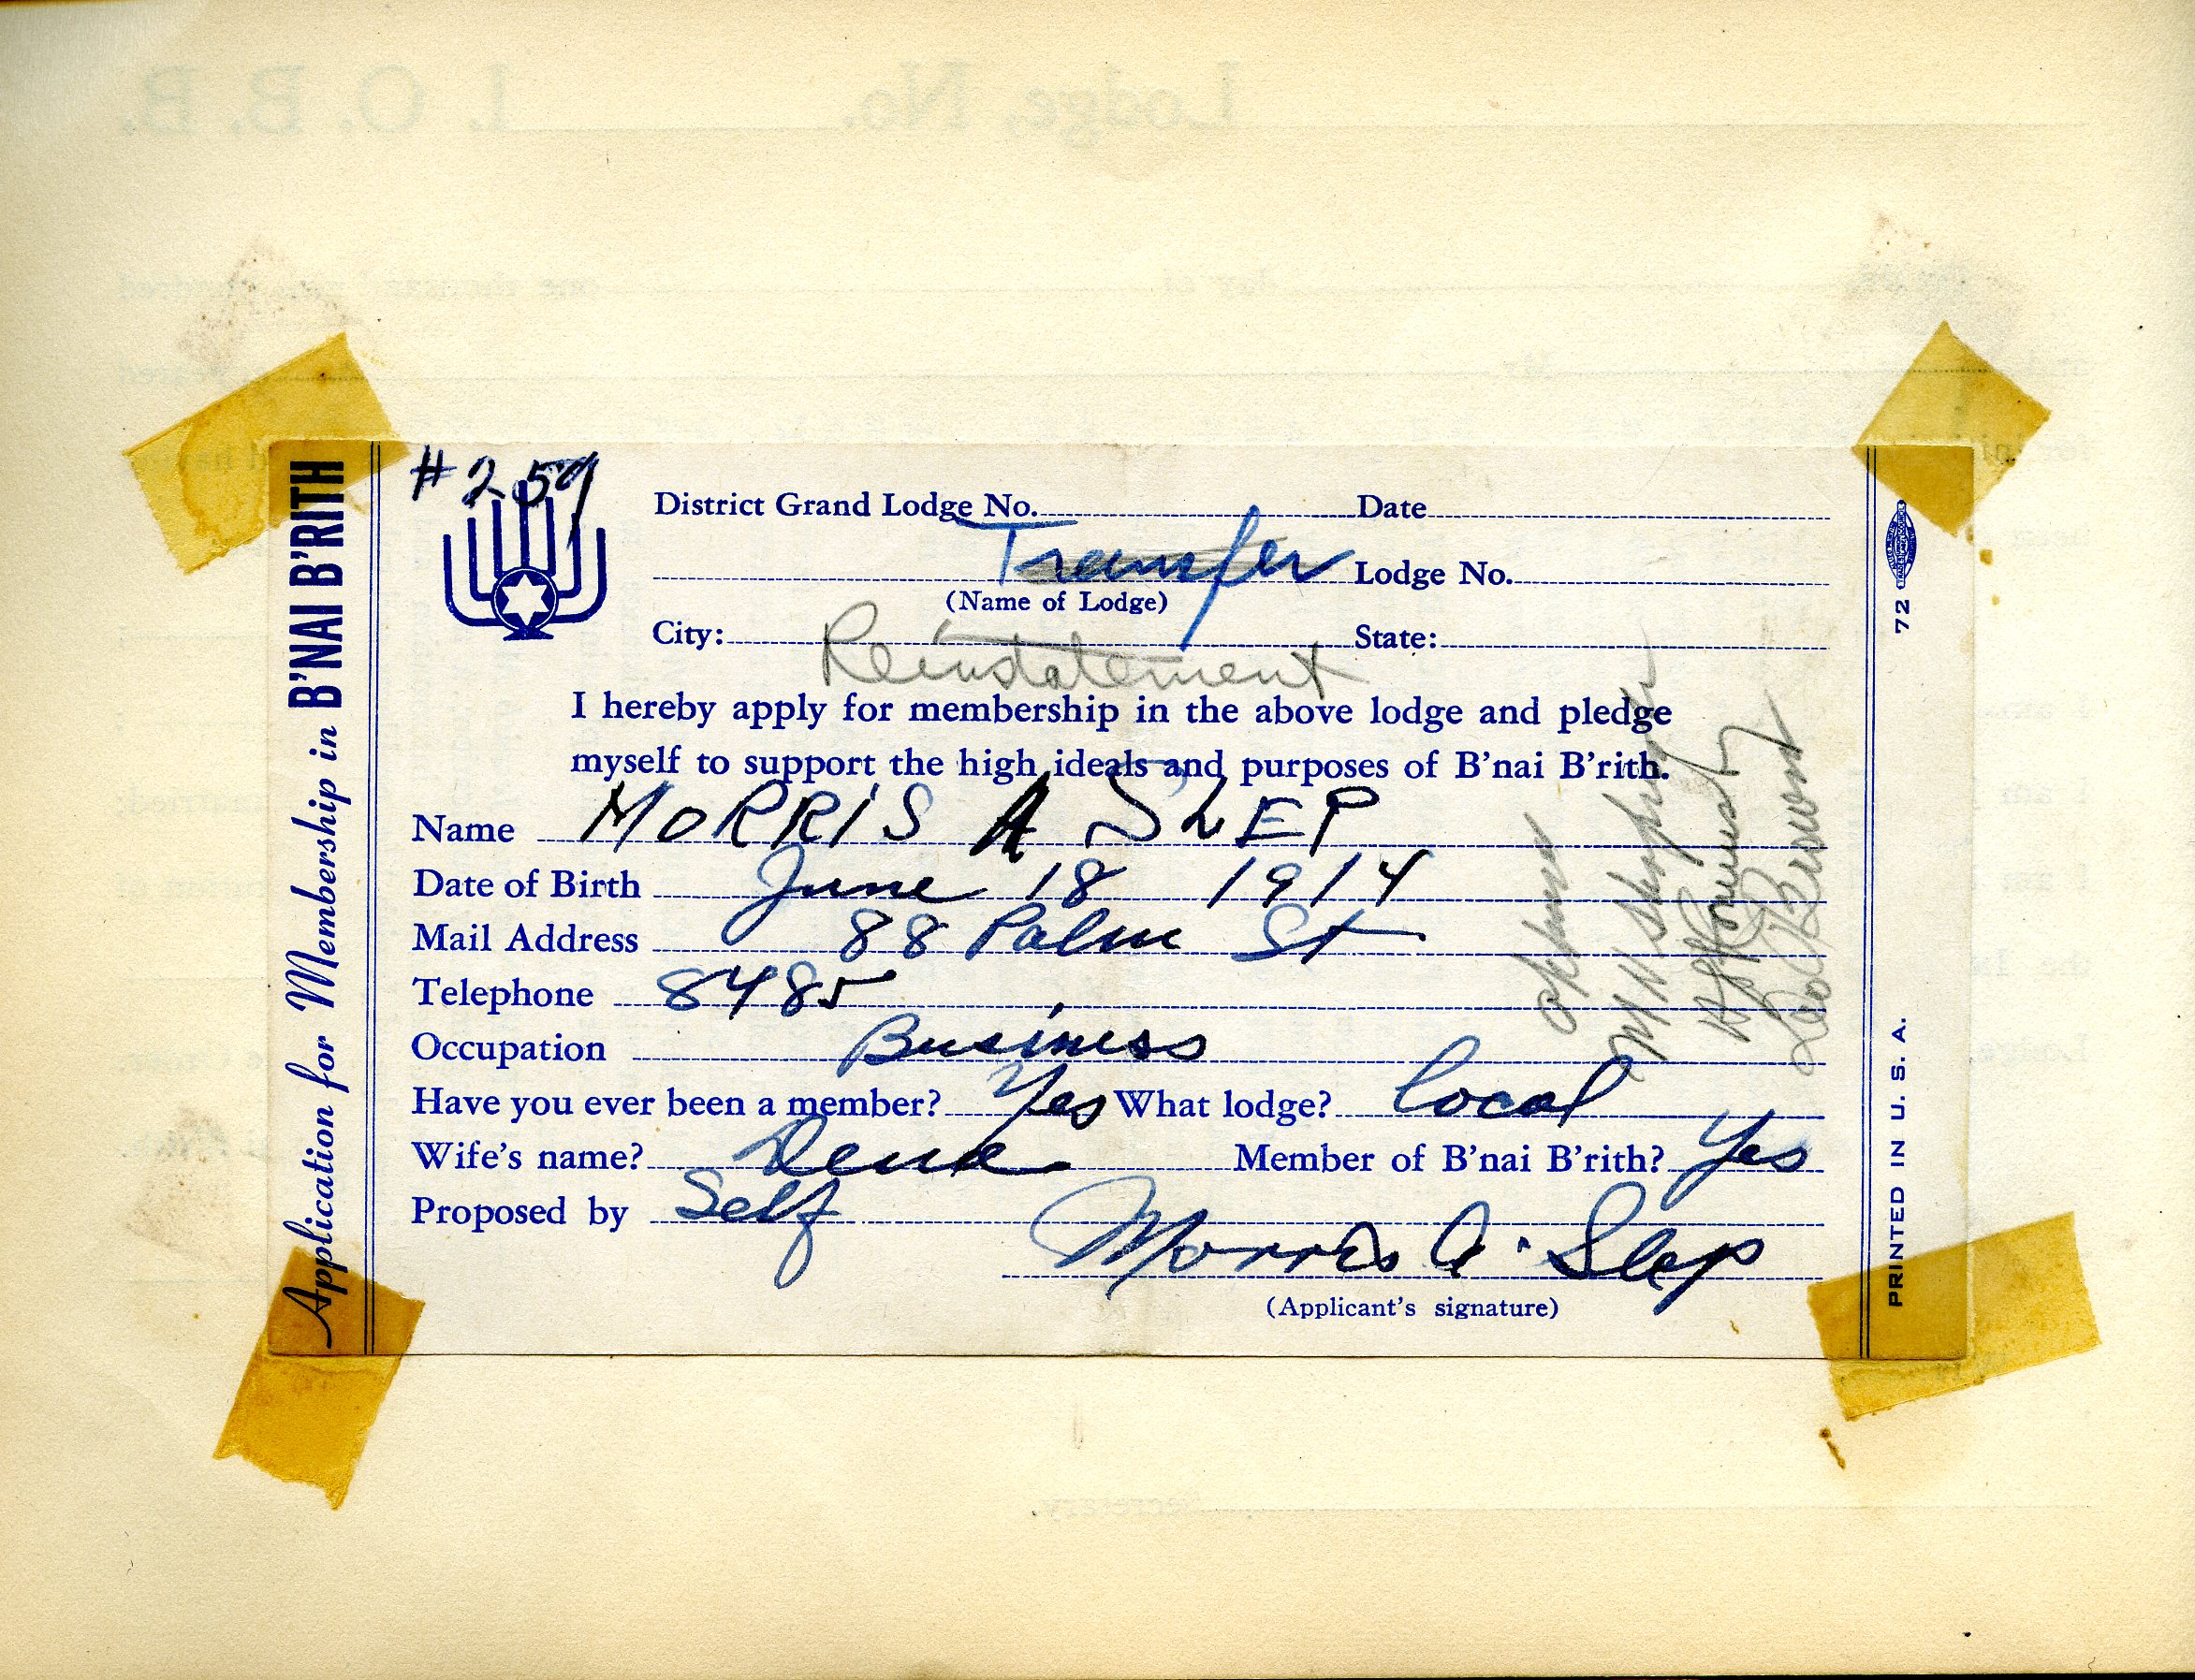 Lodge, No. I. O. B. B.
Application for Membership in B'NAI B'RITH
#259
District Grand Lodge No. Date
Transfer Lodge No.
(Name of Lodge)
City: State:
Reinstatement
I hereby apply for membership in the above lodge and pledge
myself to support the high ideals and purposes of B'nai B'rith.
Name MORRIS A SLEP
Date of Birth June 18 1914
Mail Address 88 Palm St
Telephone 8485
Occupation Business
Have you ever been a member? Yes What lodge? local
Wife's name? Dena Member of B'nai B'rith? Yes
Proposed by Self
Morris A. Slep
(Applicant's signature)
72
PRINTED IN U. S. A.
Secretary.